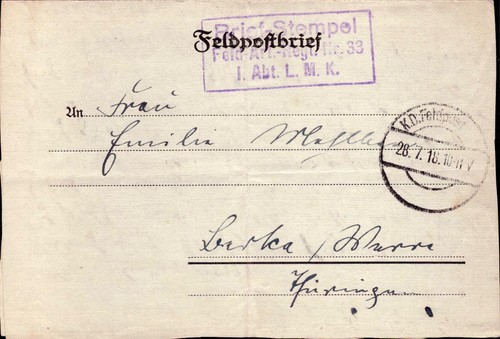 Brief-Stempel
Feldpostbrief
Feld-Art.-Regt. Nr. 33
I. Abt. L. M. K.
An Frau
Emilie
K.D. Feldpost
28. 7. 18. 10-11 V
Berka / Werra
Thüringen